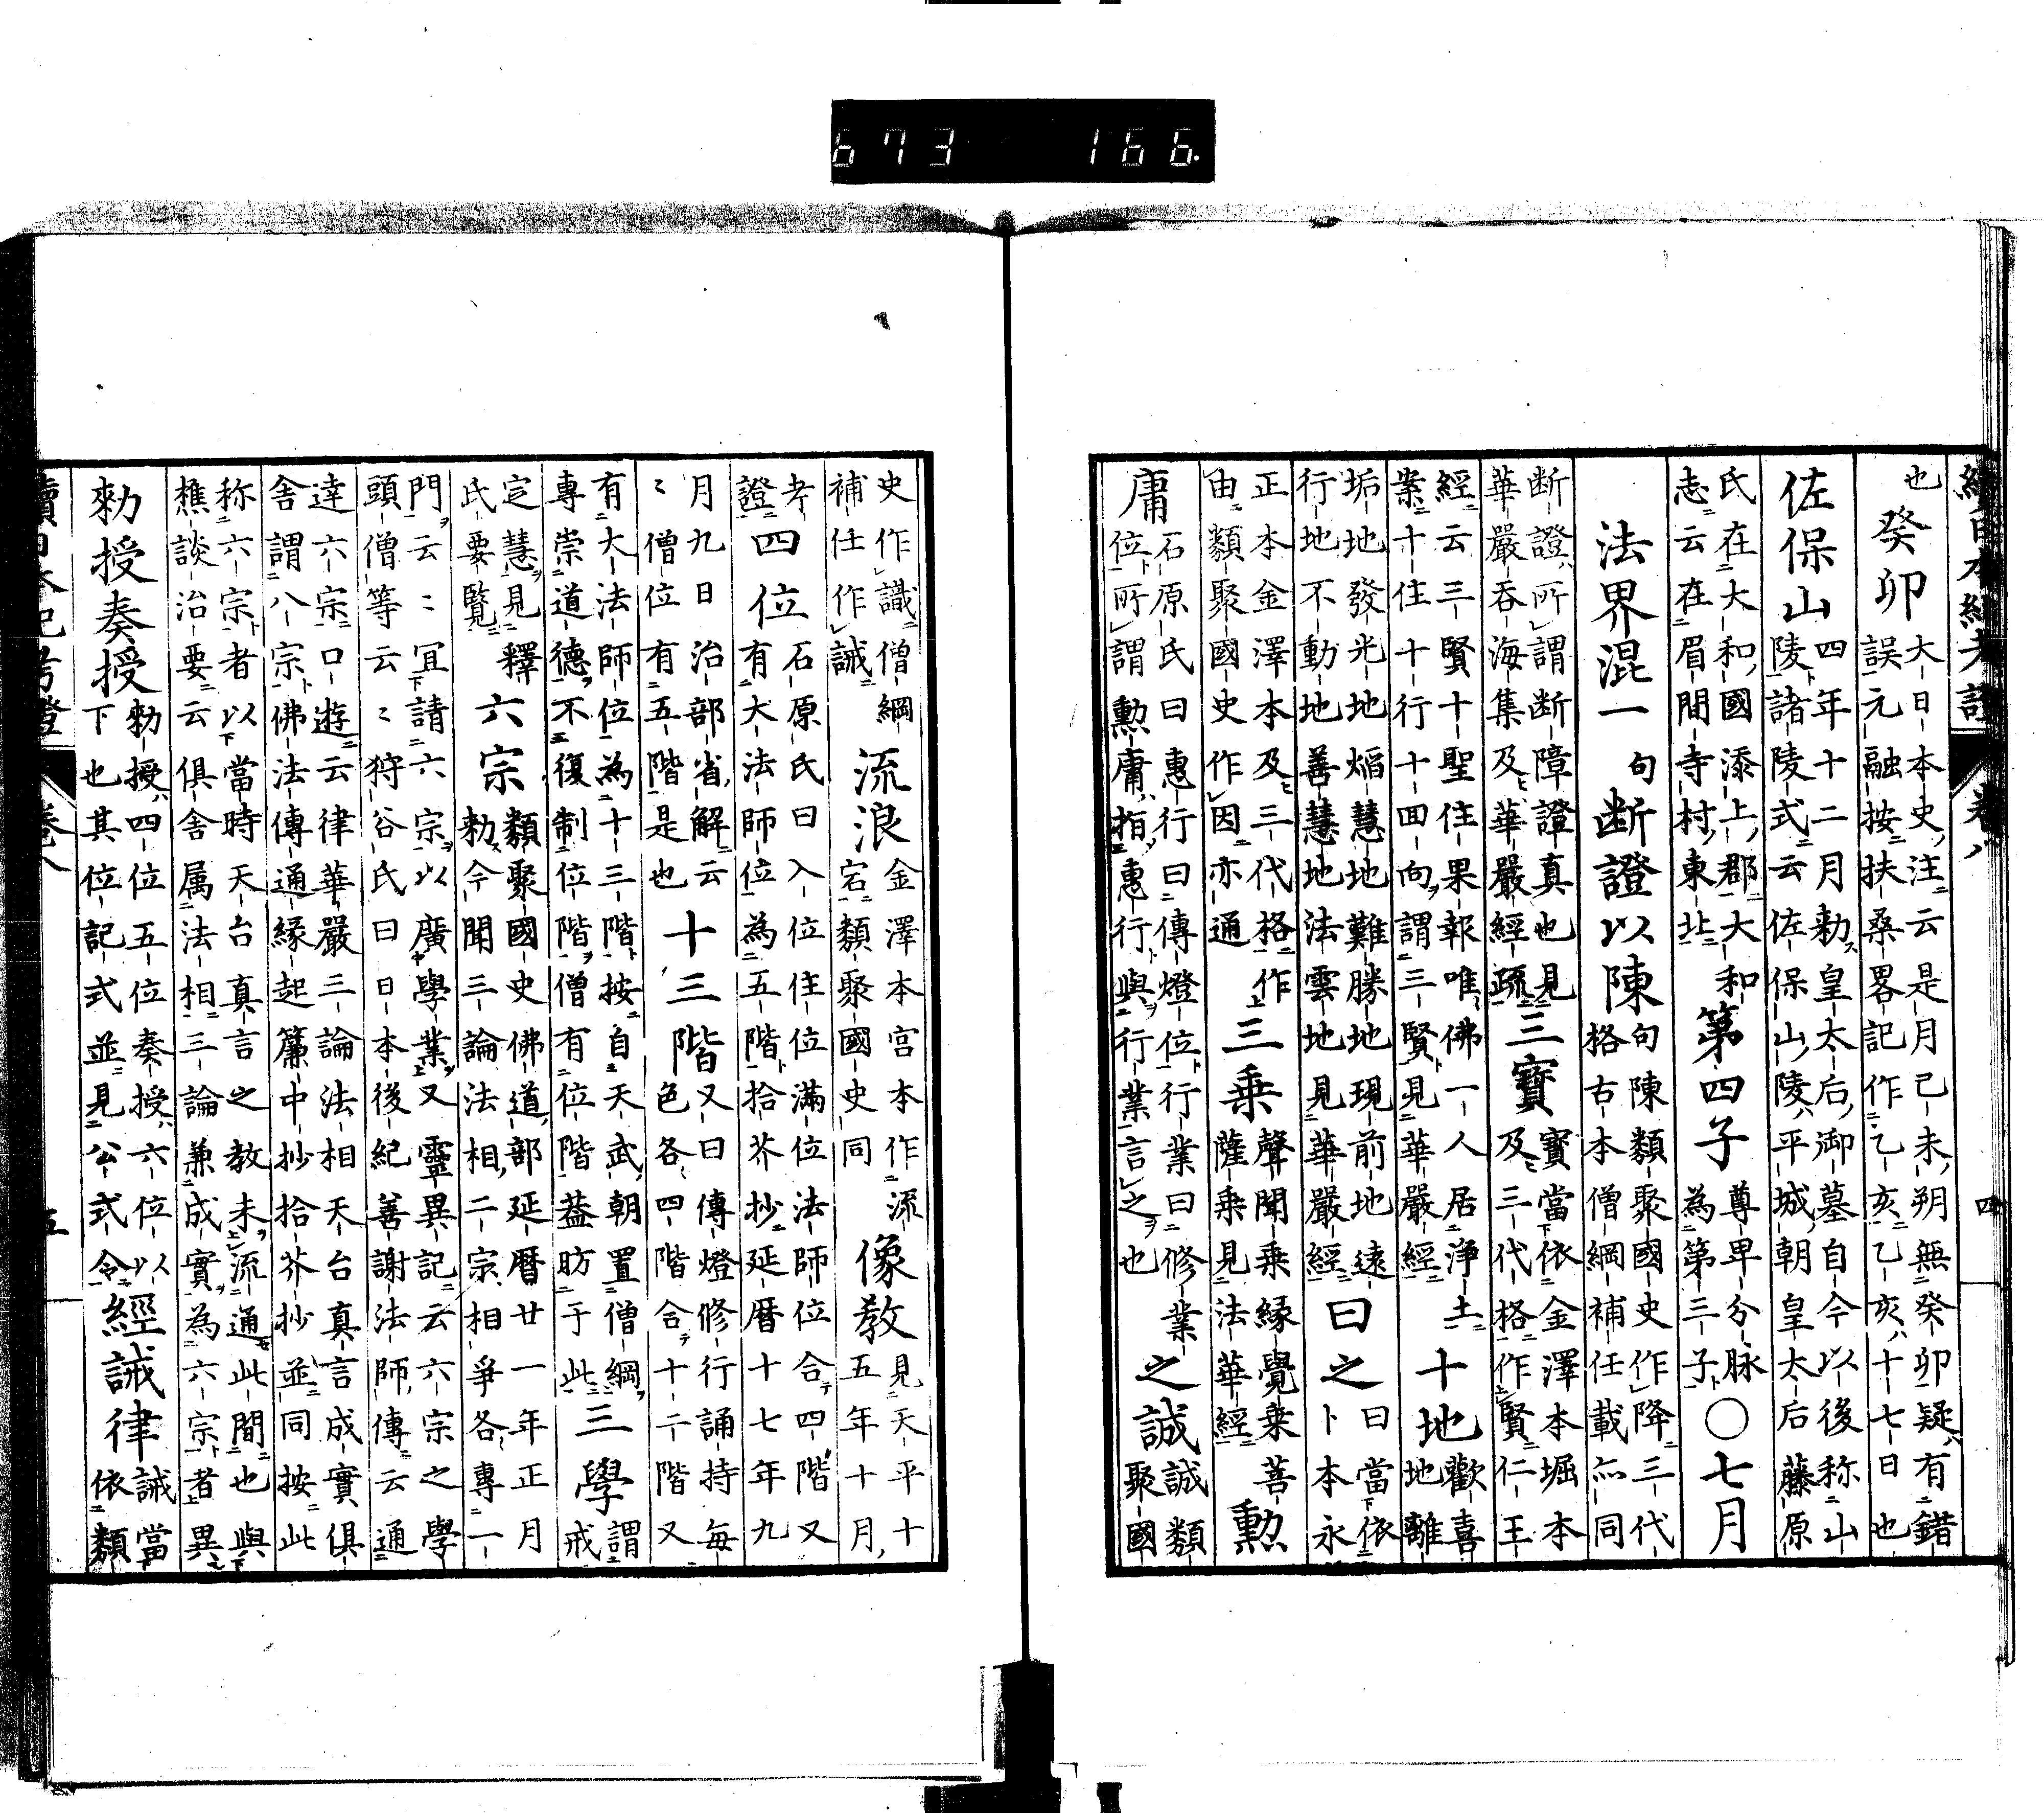 也癸卯大日本史注云是月己未朔無癸卯疑有錯
誤元融按扶桑畧記作乙亥乙亥十七日也
佐保山四年十二月勅皇太后御墓自今以後称山
陵諸陵式云佐保山陵平城朝皇太后藤原
氏在大和國添上郡大和
志云在眉間寺村東北
第四子尊卑分脉
為第三子
〇七月
法界混一句断證以陳句陳類聚國史作降三代
格古本僧綱補任載亦同
断證所謂断障證真也見
華嚴呑海集及華嚴經疏
三寶寶當依金澤本堀本
及三代格作賢仁王
經云三賢十聖住果報唯佛一人居浄土
案十住十行十回向謂三賢見華嚴經
十地歡喜
地離
垢地發光地焔慧地難勝地現前地遠
行地不動地善慧地法雲地見華嚴經
曰之曰當依
卜本永
正本金澤本及三代格作
由類聚國史作因亦通
三乗聲聞乗縁覺乗菩
薩乗見法華經
勲
庸石原氏曰惠行曰傳燈位行業曰修業
位所謂勲庸指惠行與行業言之也
之誠誠類
聚國
四
史作識僧綱
補任作誡
流浪金澤本宮本作流
宕類聚國史同
像教見天平十
五年十月
考
證
四位石原氏曰入位住位滿位法師位合四階又
有大法師位為五階拾芥抄延暦十七年九
月九日治部省解云
〻僧位有五階是也
十三階又曰傳燈修行誦持每
色各四階合十二階又
有大法師位為十三階按自天武朝置僧綱
專崇道德不復制位階僧有位階葢昉于此
三學謂
戒
定慧見釋
氏要覧
六宗類聚國史佛道部延暦廿一年正月
勅今聞三論法相二宗相爭各專一
門云〻宜請六宗以廣學業又靈異記云六宗之學
頭僧等云〻狩谷氏曰日本後紀善謝法師傳云通
達六宗口遊云律華嚴三論法相天台真言成實俱
舎謂八宗佛法傳通縁起簾中抄拾芥抄並同按此
称六宗者以當時天台真言之教未流通此間也與
樵談治要云俱舎属法相三論兼成實為六宗者異
勅授奏授勅授四位五位奏授六位以
下也其位記式並見公式令
經誡律誡當
依類
五
673 166.